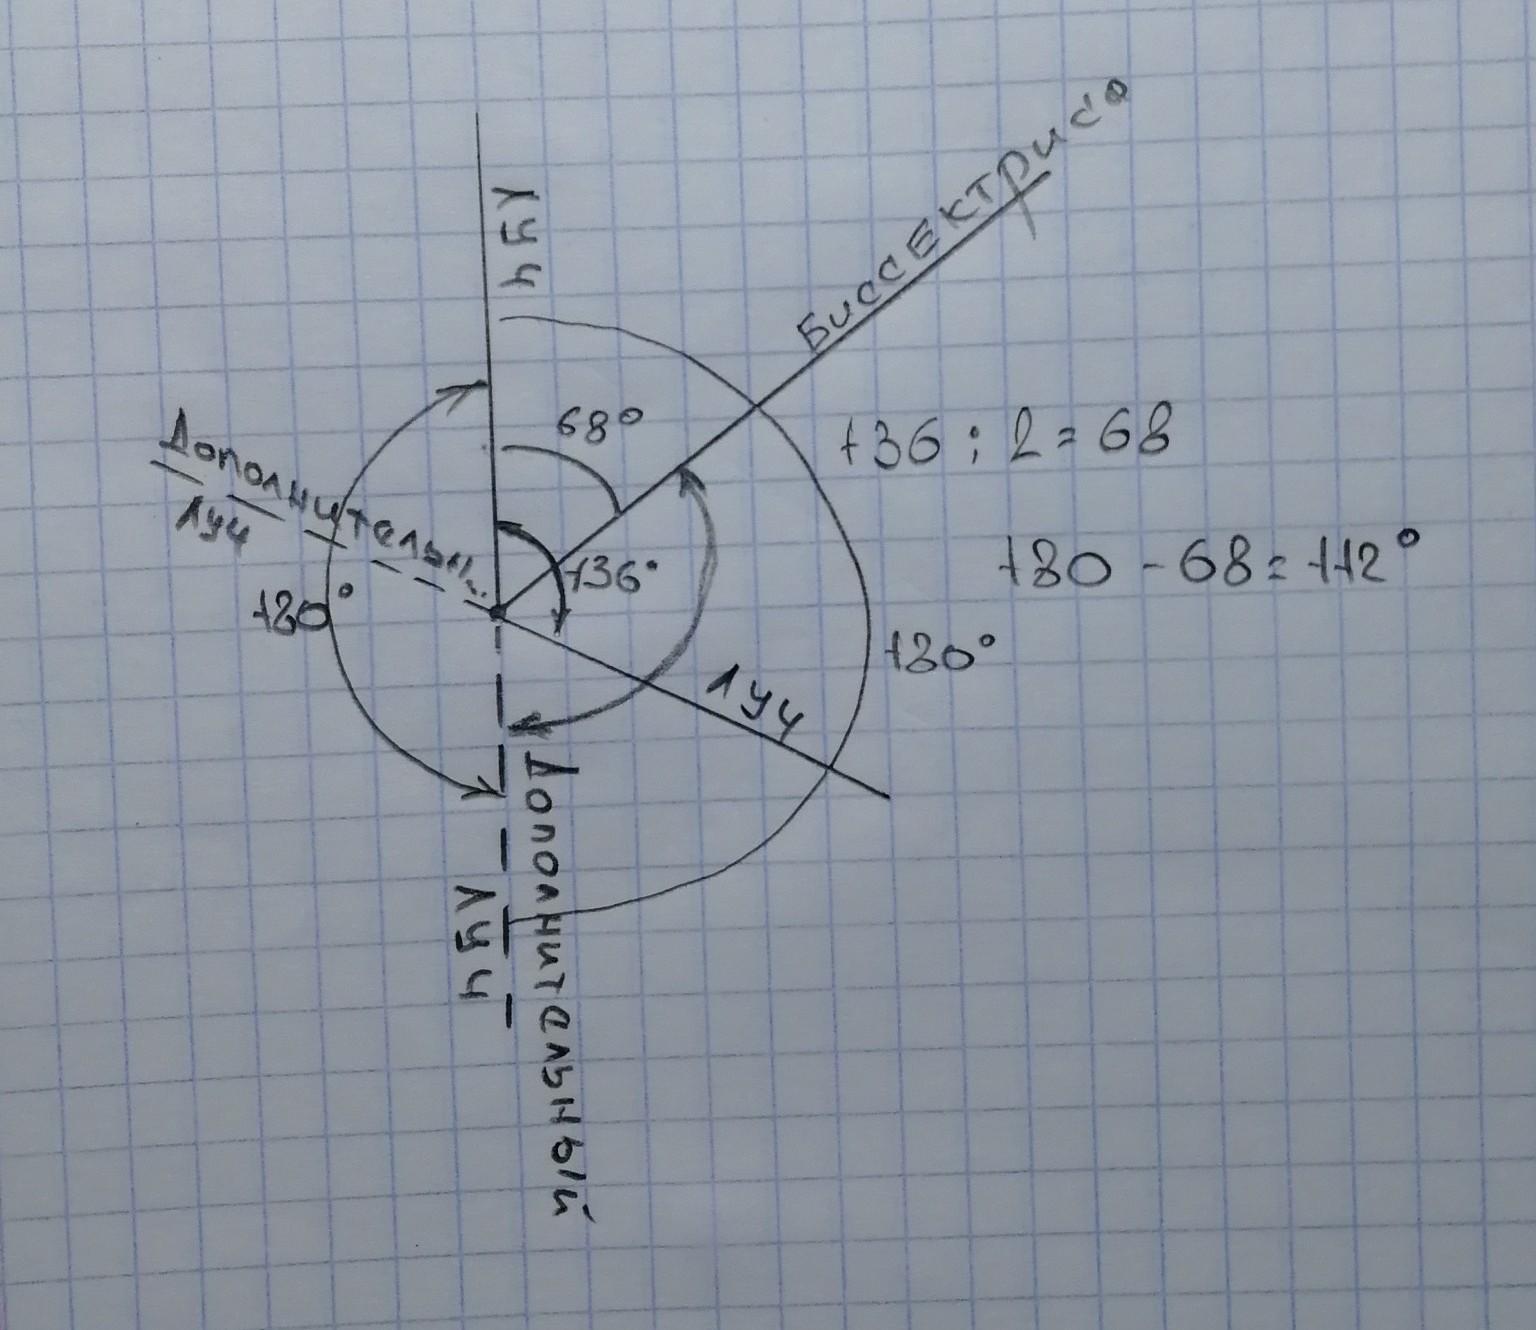 Луч
Биссектриса
68°
136 : 2 = 68
Дополнительн.
Луч
136°
180 - 68 = 112°
180°
180°
Луч
Дополнительный
Луч